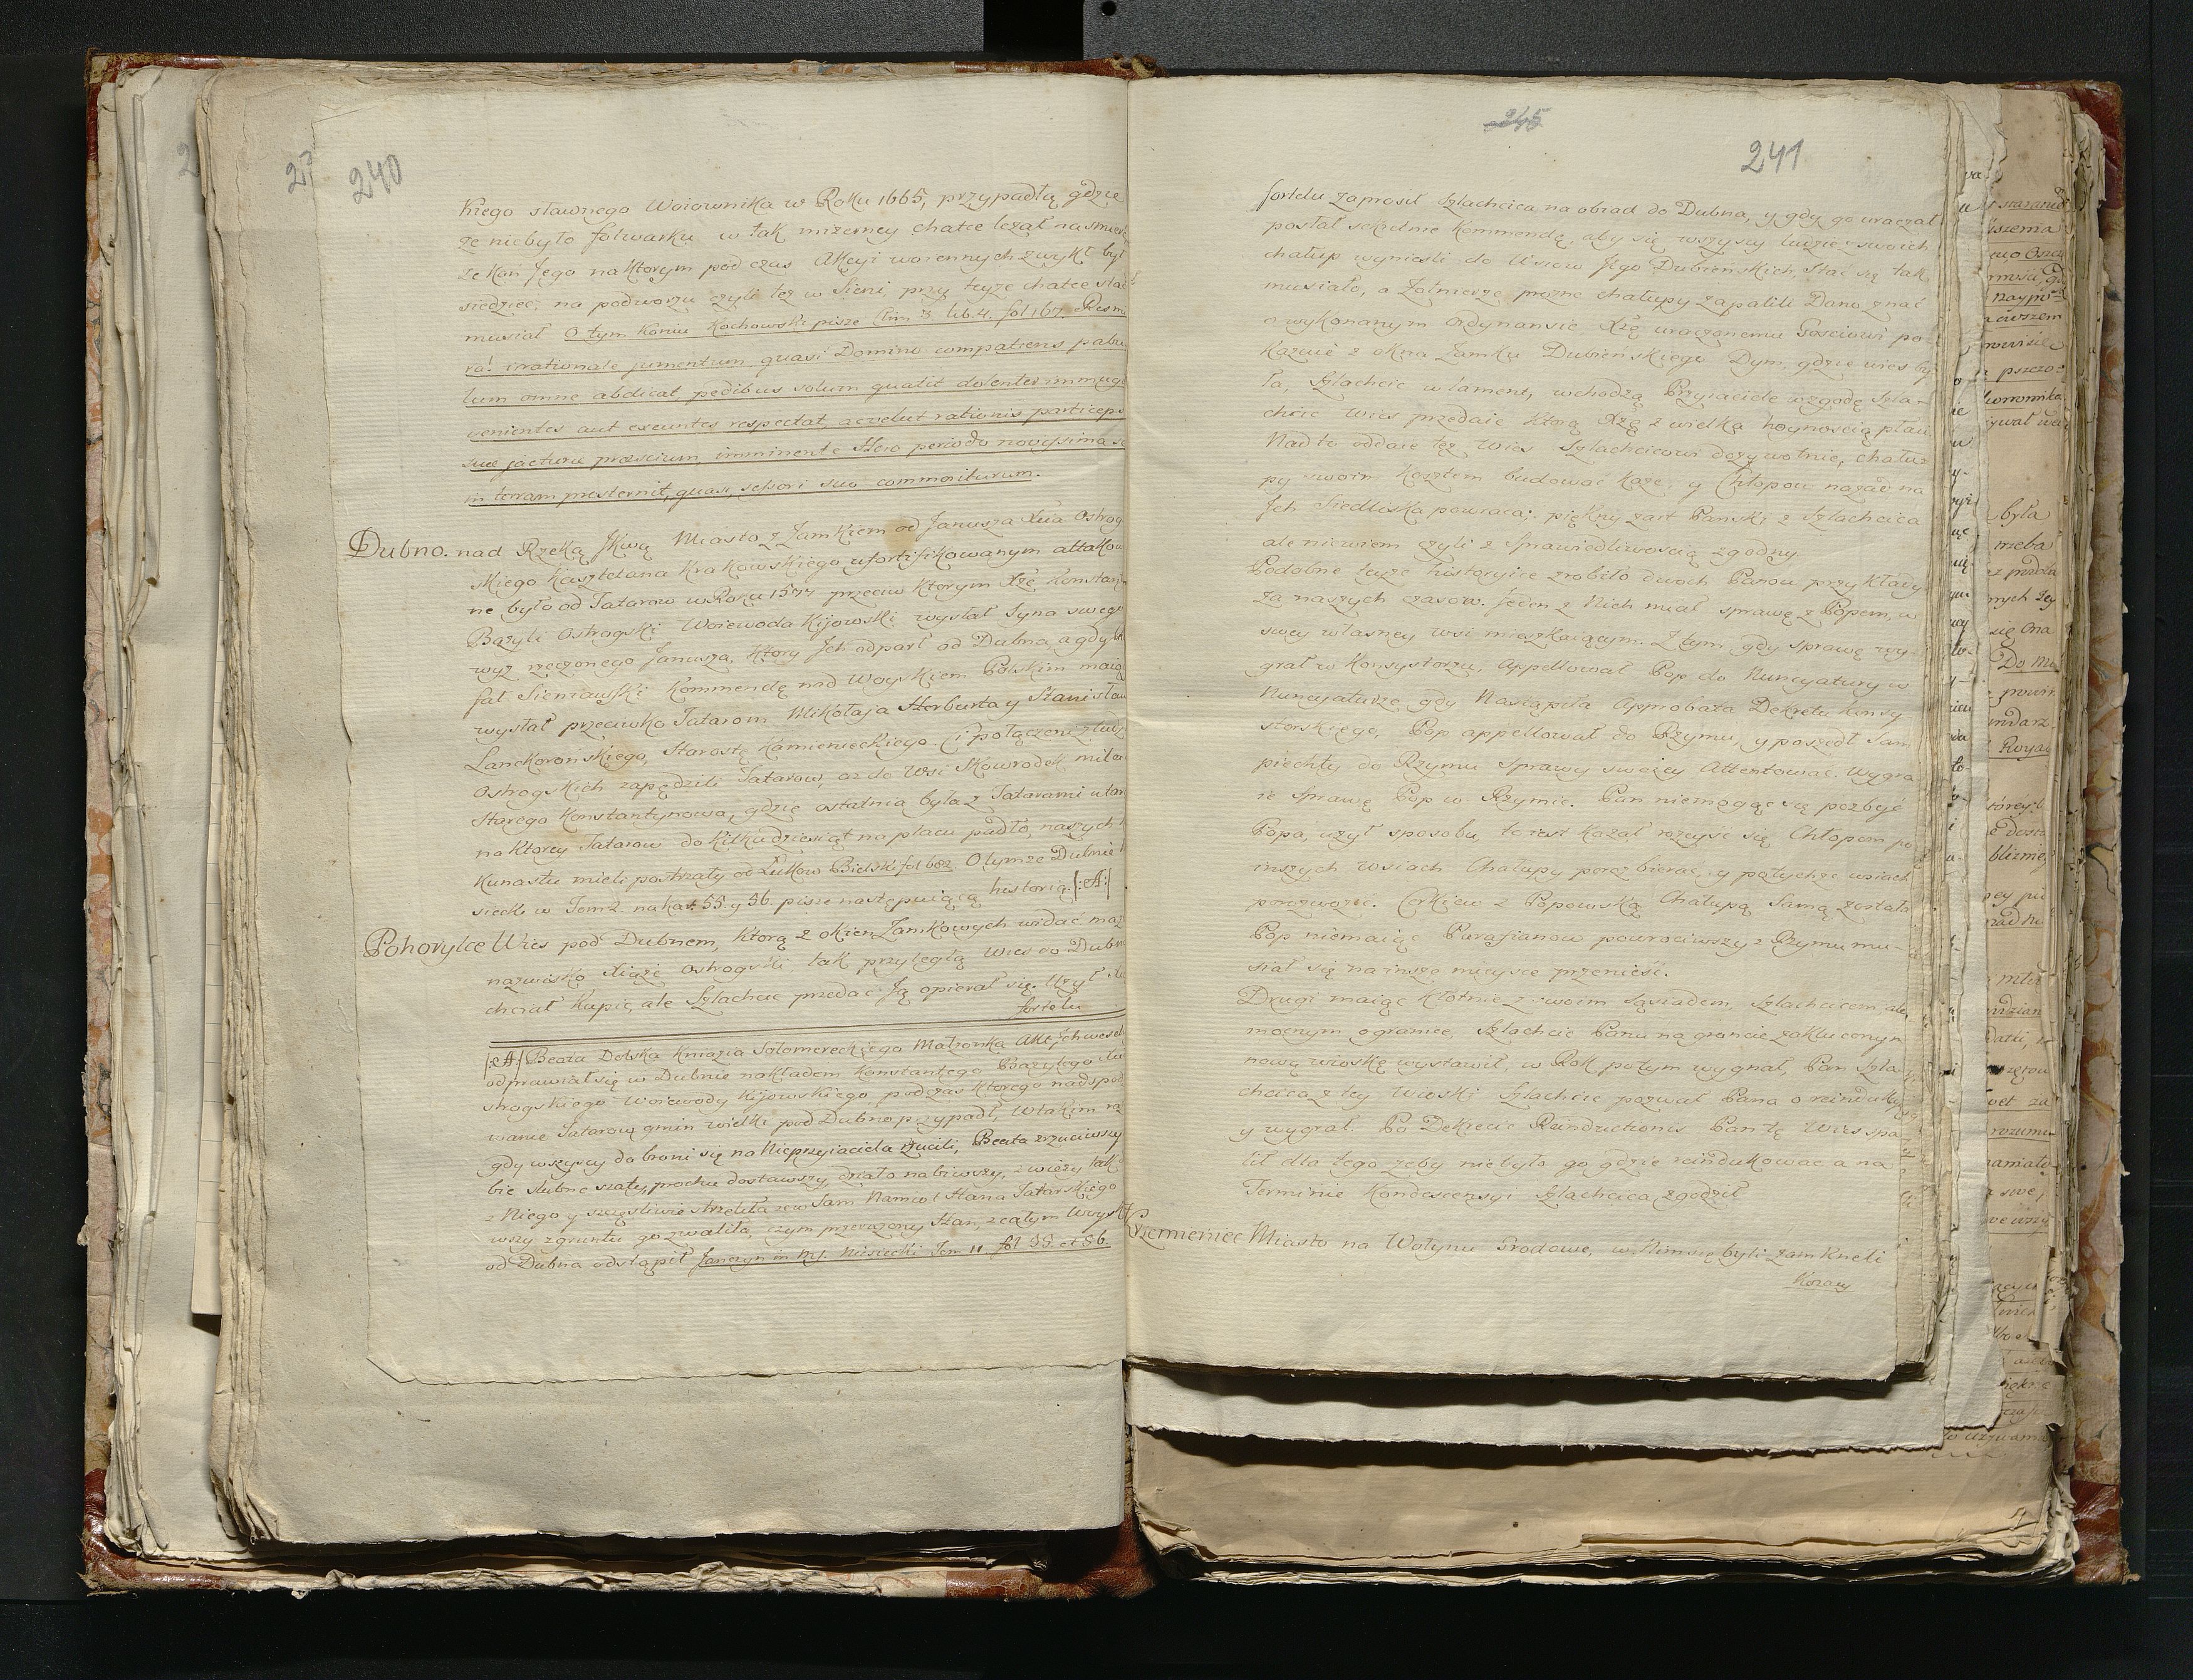 240
kiego sławnego Woiownika w Roku 1665, przypadłą gdzie
że niebyło folwarku w tak mizerney chatce leżał na smier
że Koń Jego na Ktorym pod czas Akcyi woiennych zwykł był
siedziec, na podworzu czyli też w Sieni, przy teyże chatce stać
musiał O tym Koniu Kochowski pisze Clim 3. lib. 4. fol 167. Res mi
ra! irrationale jumentum quasi Domino compatiens pabu
lum omne abdicat, pedibus solum quatit dolenter immugi
venientes aut exeuntes respectat, ac velut rationis particeps
suæ jacturæ præscium, imminente Hero periodo novissima se
in terram prosternit, quasi sessori suo commoriturum.
Dubno. nad Rzeką Ikwą Miasto z Zamkiem od Janusza Xcia Ostrog
skiego Kasztelana Krakowskiego ufortifikowanym attakow
ne było od Tatarow w Roku 1577 przeciw ktorym Xże Konstan
Bazyli Ostrogski Woiewoda Kijowski wysłał Syna swego
wyż rzeczonego Janusza, Ktory Ich odparł od Dubna, a gdy
fał Sieniawski Kommendę nad Woyskiem Polskim maią
wysłał przeciwko Tatarom Mikołaja Herburta y Stanisław
Lanckorońskiego, Starostę Kamienieckiego. Ci połączeni z ludz
Ostrogskich zapędzili Tatarow, aż do Wsi Skowrodek mila
Starego Konstantynowa, gdzie ostatnia była z Tatarami utar
na Ktorey Tatarow do kilkudziesiąt na placu padło, naszych
Kunastu mieli postrzały od Łukow Bielski fol 602 O tymże Dubnie
siecki w Tom 2. na kar. 55. y 56. pisze następuiącą historią. [:A:]
Pohorylce Wies pod Dubnem, Ktorą z okien Zamkowych widać ma
nazwisko Xiąże Ostrogski tak przyległą Wies do Dubn
chciał Kupić, ale Szlachcic przedać Ją opierał się. Użył
fortelu
[:A:] Beata Dolska Kniazia Solomereckiego Małżonka Akt Ich wesel
odprawiał się w Dubnie nakładem Konstantego Bazylego Xc
strogskiego Woiewody Kijowskiego, podczas Ktorego nadspo
wanie Tatarow gmin wielki pod Dubno przypadł, W takim ra
gdy wszyscy do broni się na Nieprzyiaciela rzucili, Beata zrzuciwszy
bie slubne szaty, prochu dostawszy, działo nabiwszy, z wieży tak
z Niego y szczęśliwie strzeliła że w Sam Namiot Hana Tatarskiego
wszy zgruntu go zwaliła, czym przerażony Han, z całym Woysk
od Dubna odstąpił Janczyn in Ms. Niesiecki Tom 11 fol 55 et 56
245
241
fortelu zaprosił Szlachcica na obiad do Dubna, y gdy go uraczał
posłał sekretnie Kommendę, aby się wszyscy ludzie z swoich
chałup wyniesli do Wsiow Jego Dubienskich, Stać się tak
musiało, a Żołnierze prozne chałupy zapalili Dano znać
o wykonanym Ordynansie. Xże uraczonemu Gosciowi po
Kazuie z okna Zamku Dubienskiego Dym, gdzie wies by
ła, Szlachcic w lament, wchodzą Przyiaciele w zgodę Szla-
chcic Wies przedaie Ktorą Xże z wielką hoynoscią płaci
Nadto oddaie też Wies Szlachcicowi dożywotnie, chału-
py swoim Kosztem budować każe, y Chłopow nazad na
Ich Siedliska powraca: piękny żart Pański z Szlachcica
ale niewiem czyli z Sprawiedliwoscią zgodny
Podobne teyże historyice zrobiło dwoch Panow przykłady
za naszych czasow. Jeden z Nich miał sprawę z Popem, w
swey własney wsi mieszkaiącym. Z tym, gdy sprawę wy
grał w Konsystorzu, Appellował Pop do Nuncyatury w
Nuncyaturze gdy Nastąpiła Approbata Dekretu Konsy
storskiego, Pop appellował do Rzymu, y poszedł Sam
piechty do Rzymu Sprawy swoiey Attentować. Wygra
ie Sprawę Pop w Rzymie. Pan niemogąc się pozbyć
Popa, użył sposobu, to iest Kazał rozeyść się Chłopom po
inszych wsiach Chałupy porozbierać, y po tychże wsiach
porozwozić. Cerkiew z Popowską Chałupą Samą została
Pop niemaiąc Parafianow powrociwszy z Rzymu mu-
siał się na insze mieysce przenieść.
Drugi maiąc Kłotnie z swoim Sąsiadem, Szlachcicem, ale
mocnym o granice, Szlachcic Panu na gruncie zakłuconym
nową wioskę wystawił, w Rok potym wygnał, Pan Szla-
chcica z tey Wioski Szlachcic pozwał Pana o reindukcyą
y wygrał. Po Dekrecie Reinductionis Pan tę Wies spa
lił dla tego żeby niebyło go gdzie reindukować a na
Terminie Kondescensyi Szlachcica zgodził
Krzemieniec Miasto na Wołyniu Grodowe, w Nim się byli zamkneli
Kozacy